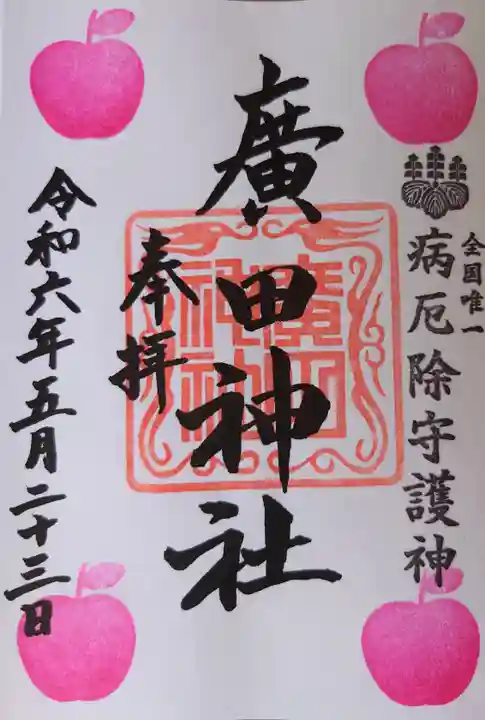 全国唯一
病厄除守護神
廣田神社
奉拝
廣田
神社
令和六年五月二十三日